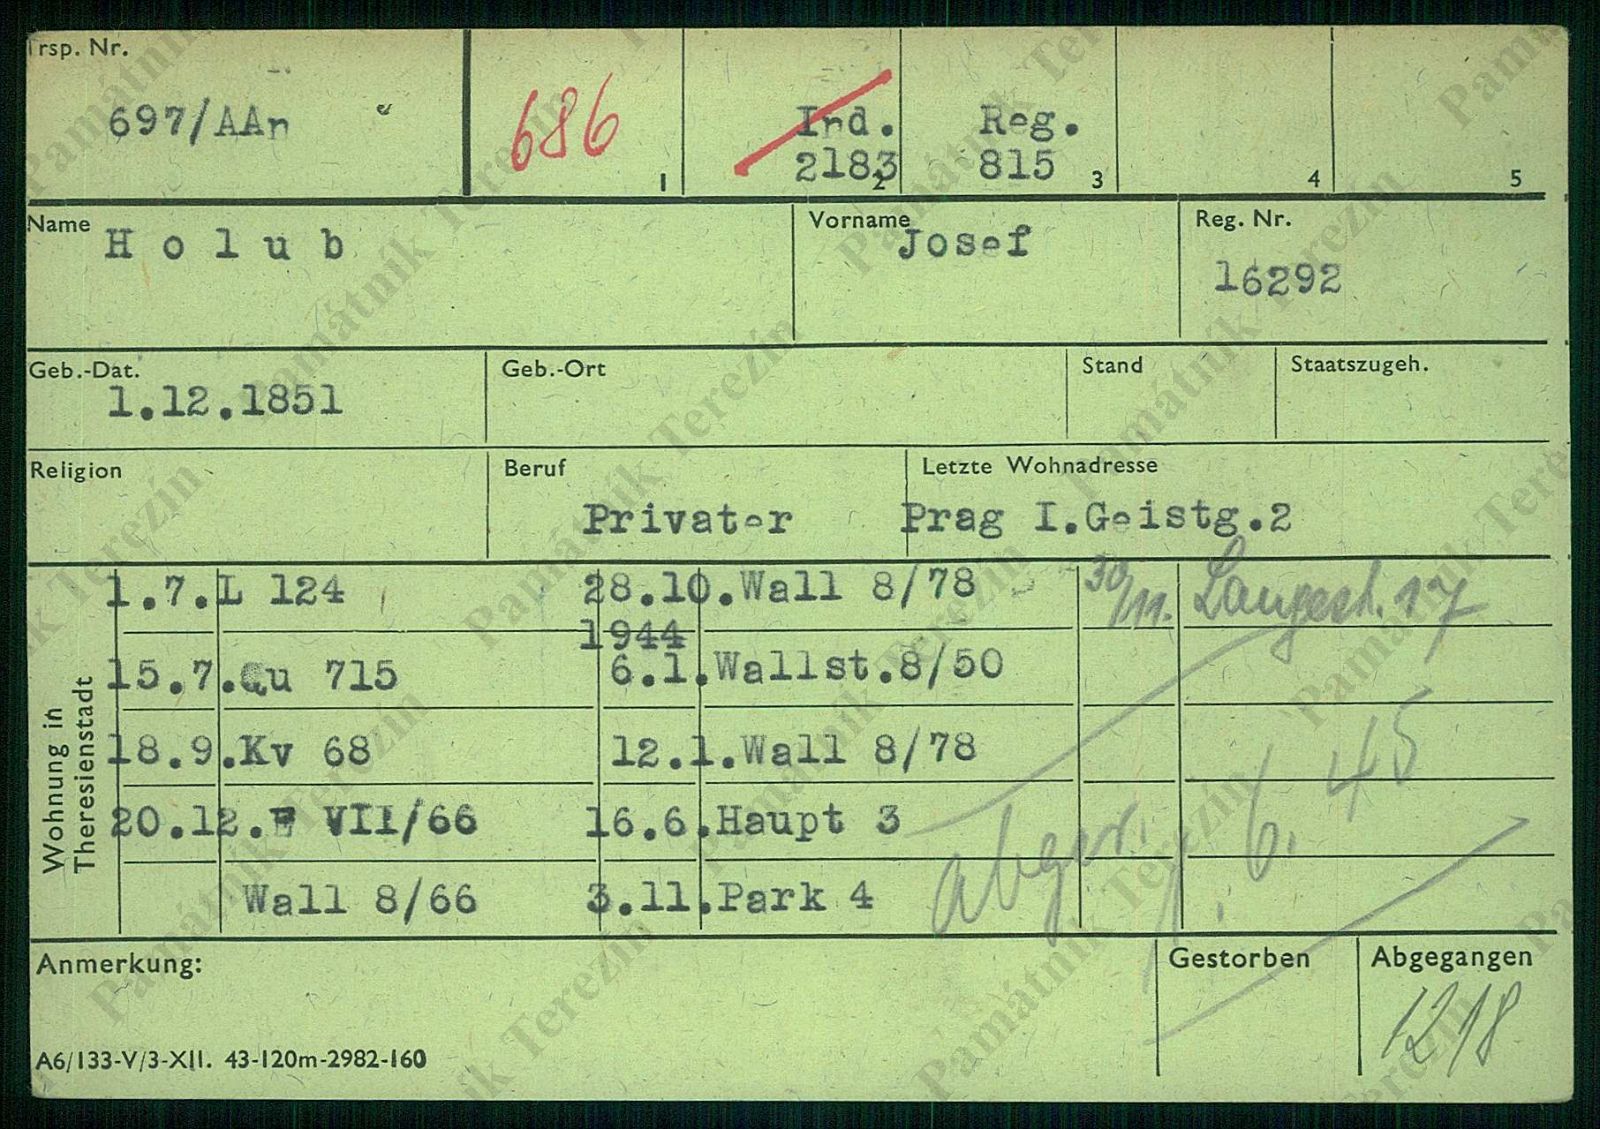 Trsp. Nr.
697/AAn 686 Ind. Reg.
2183 815
1 2 3 4 5
Name Vorname Reg. Nr.
Holub Josef 16292
Geb.-Dat. Geb.-Ort Stand Staatszugeh.
1.12.1851
Religion Beruf Letzte Wohnadresse
Privater Prag I.Geistg.2
Wohnung in
Theresienstadt
1.7. L 124 28.10. Wall 8/78 30/11. Langestr. 17
1944
15.7. Qu 715 6.1. Wallst.8/50
18.9. Kv 68 12.1. Wall 8/78
20.12. E VII/66 16.6. Haupt 3
Wall 8/66 3.11. Park 4
abger. 1. 6. 45
Anmerkung: Gestorben Abgegangen
1218
A6/133-V/3-XII. 43-120m-2982-160
Památník Terezín